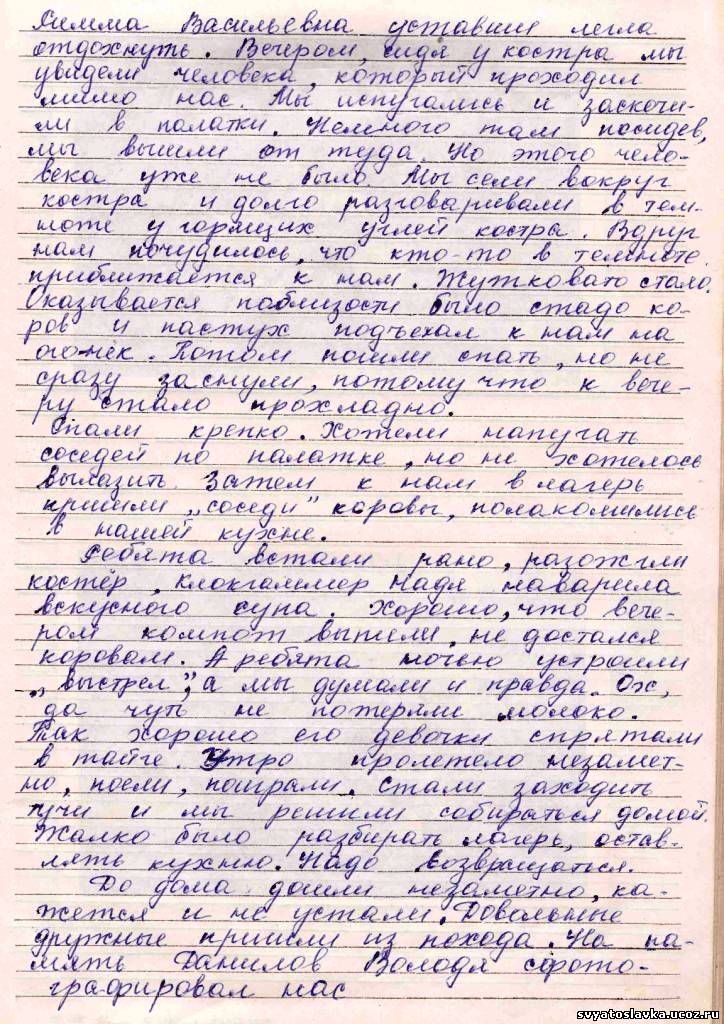 Римма Васильевна уставши легла
отдохнуть. Вечером, сидя у костра мы
увидели человека, который проходил
мимо нас. Мы испугались и заскочи-
ли в палатки. Немного там посидев,
мы вышли от туда. Но этого чело-
века уже не было. Мы сели вокруг
костра и долго разговаривали в тем-
ноте у горящих углей костра. Вдруг
нам почудилось, что кто-то в темноте
приближается к нам. Жутковато стало.
Оказывается поблизости было стадо ко-
ров и пастух подъехал к нам на
огонёк. Потом пошли спать, но не
сразу заснули, потому что к вече-
ру стало прохладно.
Спали крепко. Хотели напугать
соседей по палатке, но не хотелось
вылазить. Затем к нам в лагерь
пришли „соседи" коровы, полакомились
в нашей кухне.
Ребята встали рано, разожгли
костёр, Клокгаммер Надя наварила
вскусного супа. Хорошо, что вече-
ром компот выпили, не достался
коровам. А ребята ночью устроили
„выстрел", а мы думали и правда. Ох,
да чуть не потеряли молоко.
Так хорошо его девочки спрятали
в тайге. Утро пролетело незамет-
но, поели, поиграли. Стали заходить
тучи и мы решили собираться домой.
Жалко было разбирать лагерь, остав-
лять кухню. Надо возвращаться.
До дома дошли незаметно, ка-
жется и не устали. Довольные
дружные пришли из похода. На па-
мять Данилов Володя сфото-
графировал нас
svyatoslavka.ucoz.ru